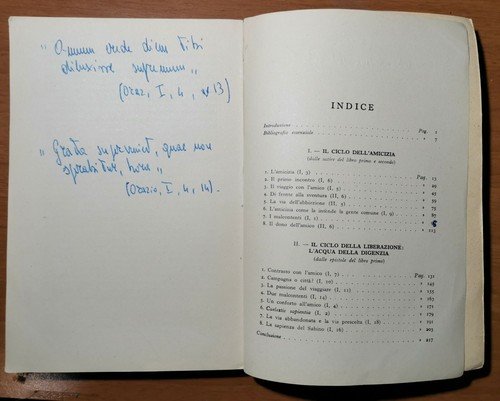 " Omnem crede diem tibi
diluxisse supremum "
(Oraz., I, 4, 13)
" Grata superveniet, quae non
sperabitur, hora "
(Orazio, I, 4, 14).
INDICE
Introduzione Pag. 1
Bibliografia essenziale » 7
I. — IL CICLO DELL'AMICIZIA
(dalle satire del libro primo e secondo)
1. L'amicizia (I, 3) Pag. 13
2. Il primo incontro (I, 6) »
3. Il viaggio con l'amico (I, 5) »
4. Di fronte alla sventura (II, 8) »
5. La via dell'abbiezione (II, 5) »
6. L'amicizia come la intende la gente comune (I, 9) » 87
7. I malcontenti (I, 1) »
8. Il dono dell'amico (II, 6) » 113
II. — IL CICLO DELLA LIBERAZIONE:
L'ACQUA DELLA DIGENZIA
(dalle epistole del libro primo)
1. Contrasto con l'amico (I, 7) Pag. 131
2. Campagna o città? (I, 10) » 145
3. La passione del viaggiare (I, 11) » 155
4. Due malcontenti (I, 14) » 167
5. Un conforto all'amico (I, 4) » 171
6. Confectis sapientia (I, 2) » 179
7. La via abbandonata e la via prescelta (I, 18) » 191
8. La sapienza del Sabino (I, 16) » 203
Conclusione » 217